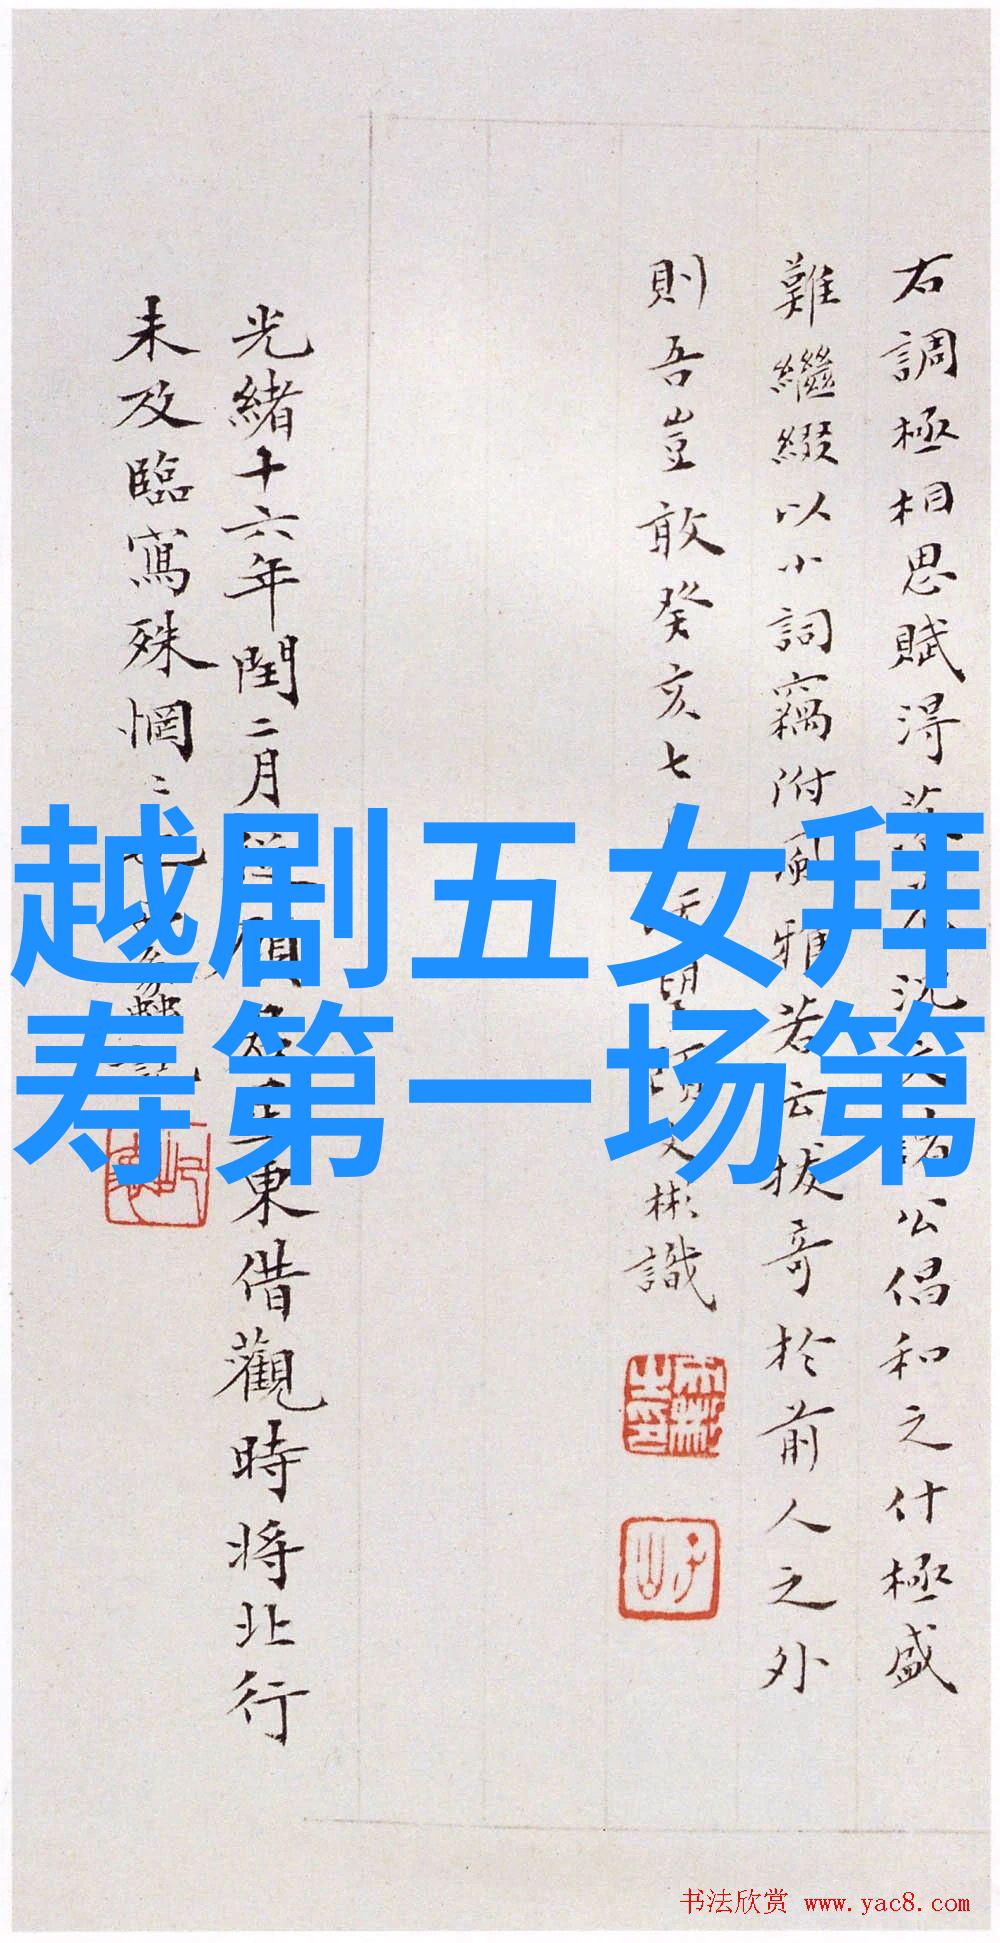 越剧五女拜
寿第一场第
右調極相思賦得沈文諸公倡和之什極盛
難繼綴以小詞竊附風雅若云拔奇於前人之外
則吾豈敢癸亥七望顧文彬識
光緒十六年閏二月東借觀時將北行
未及臨寫殊惘〻
书法欣赏 www.yac8.com